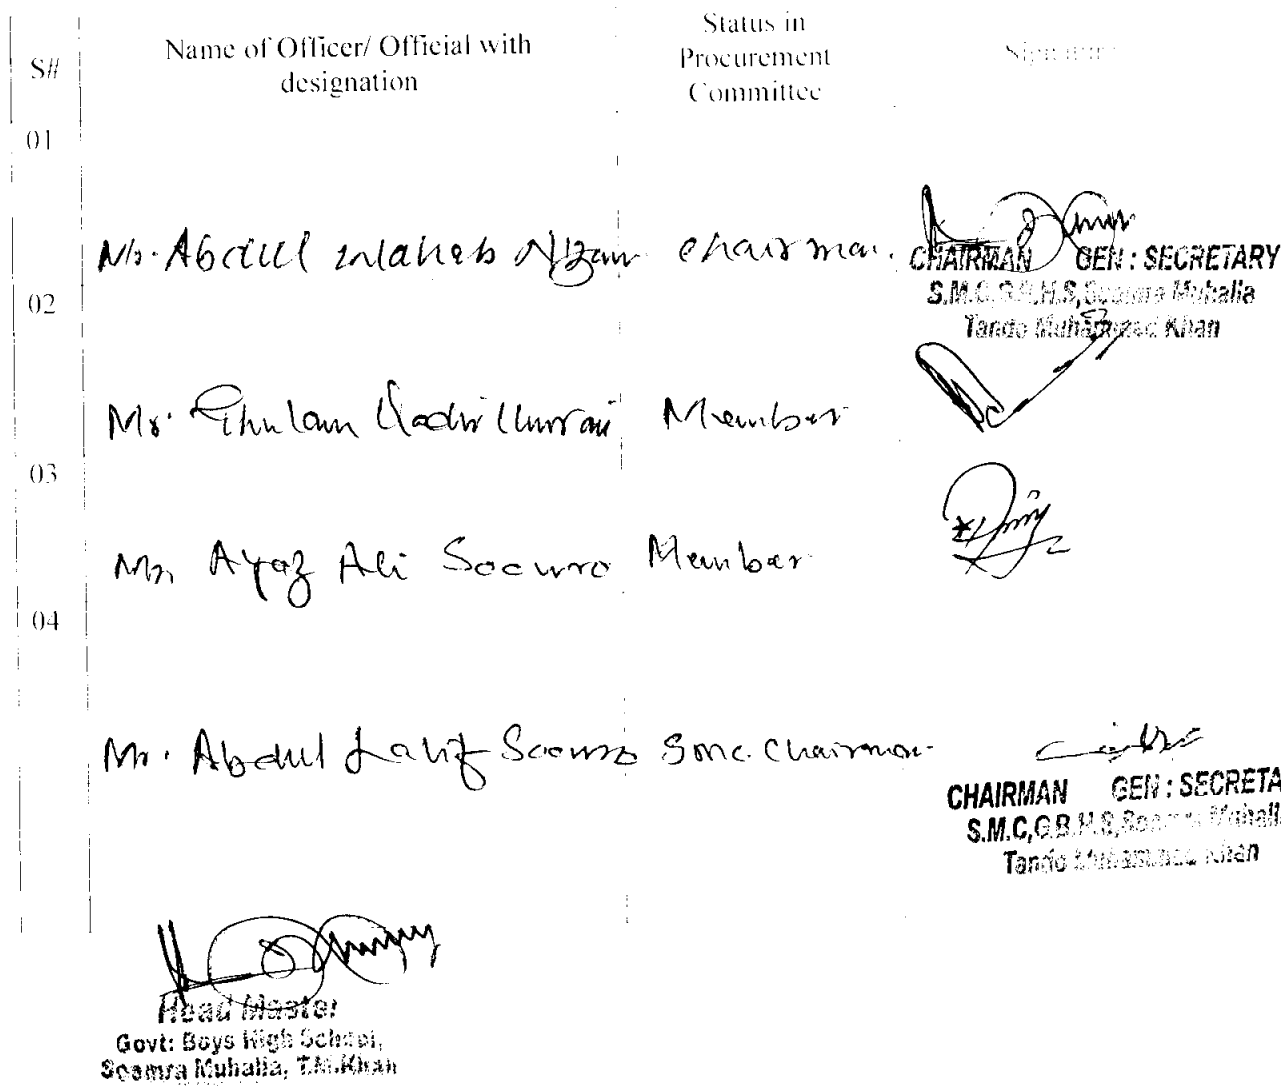 S#
Name of Officer/ Official with designation
Status in Procurement Committee
Signature
01
Mr. Abdul Wahab Nizam chairman.
CHAIRMAN GEN : SECRETARY
S.M.C,G.B.H.S,Soomra Muhalla
Tando Muhammad Khan
02
Mr. Ghulam Qadir Member
03
Mr. Ayaz Ali Soomro Member
04
Mr. Abdul Latif Soomro Smc. Chairman.
CHAIRMAN GEN : SECRETA
S.M.C,G.B.H.S,Soomra Muhall
Tando Muhammad Khan
Head Master
Govt: Boys High School,
Soomra Muhalla, T.M.Khan